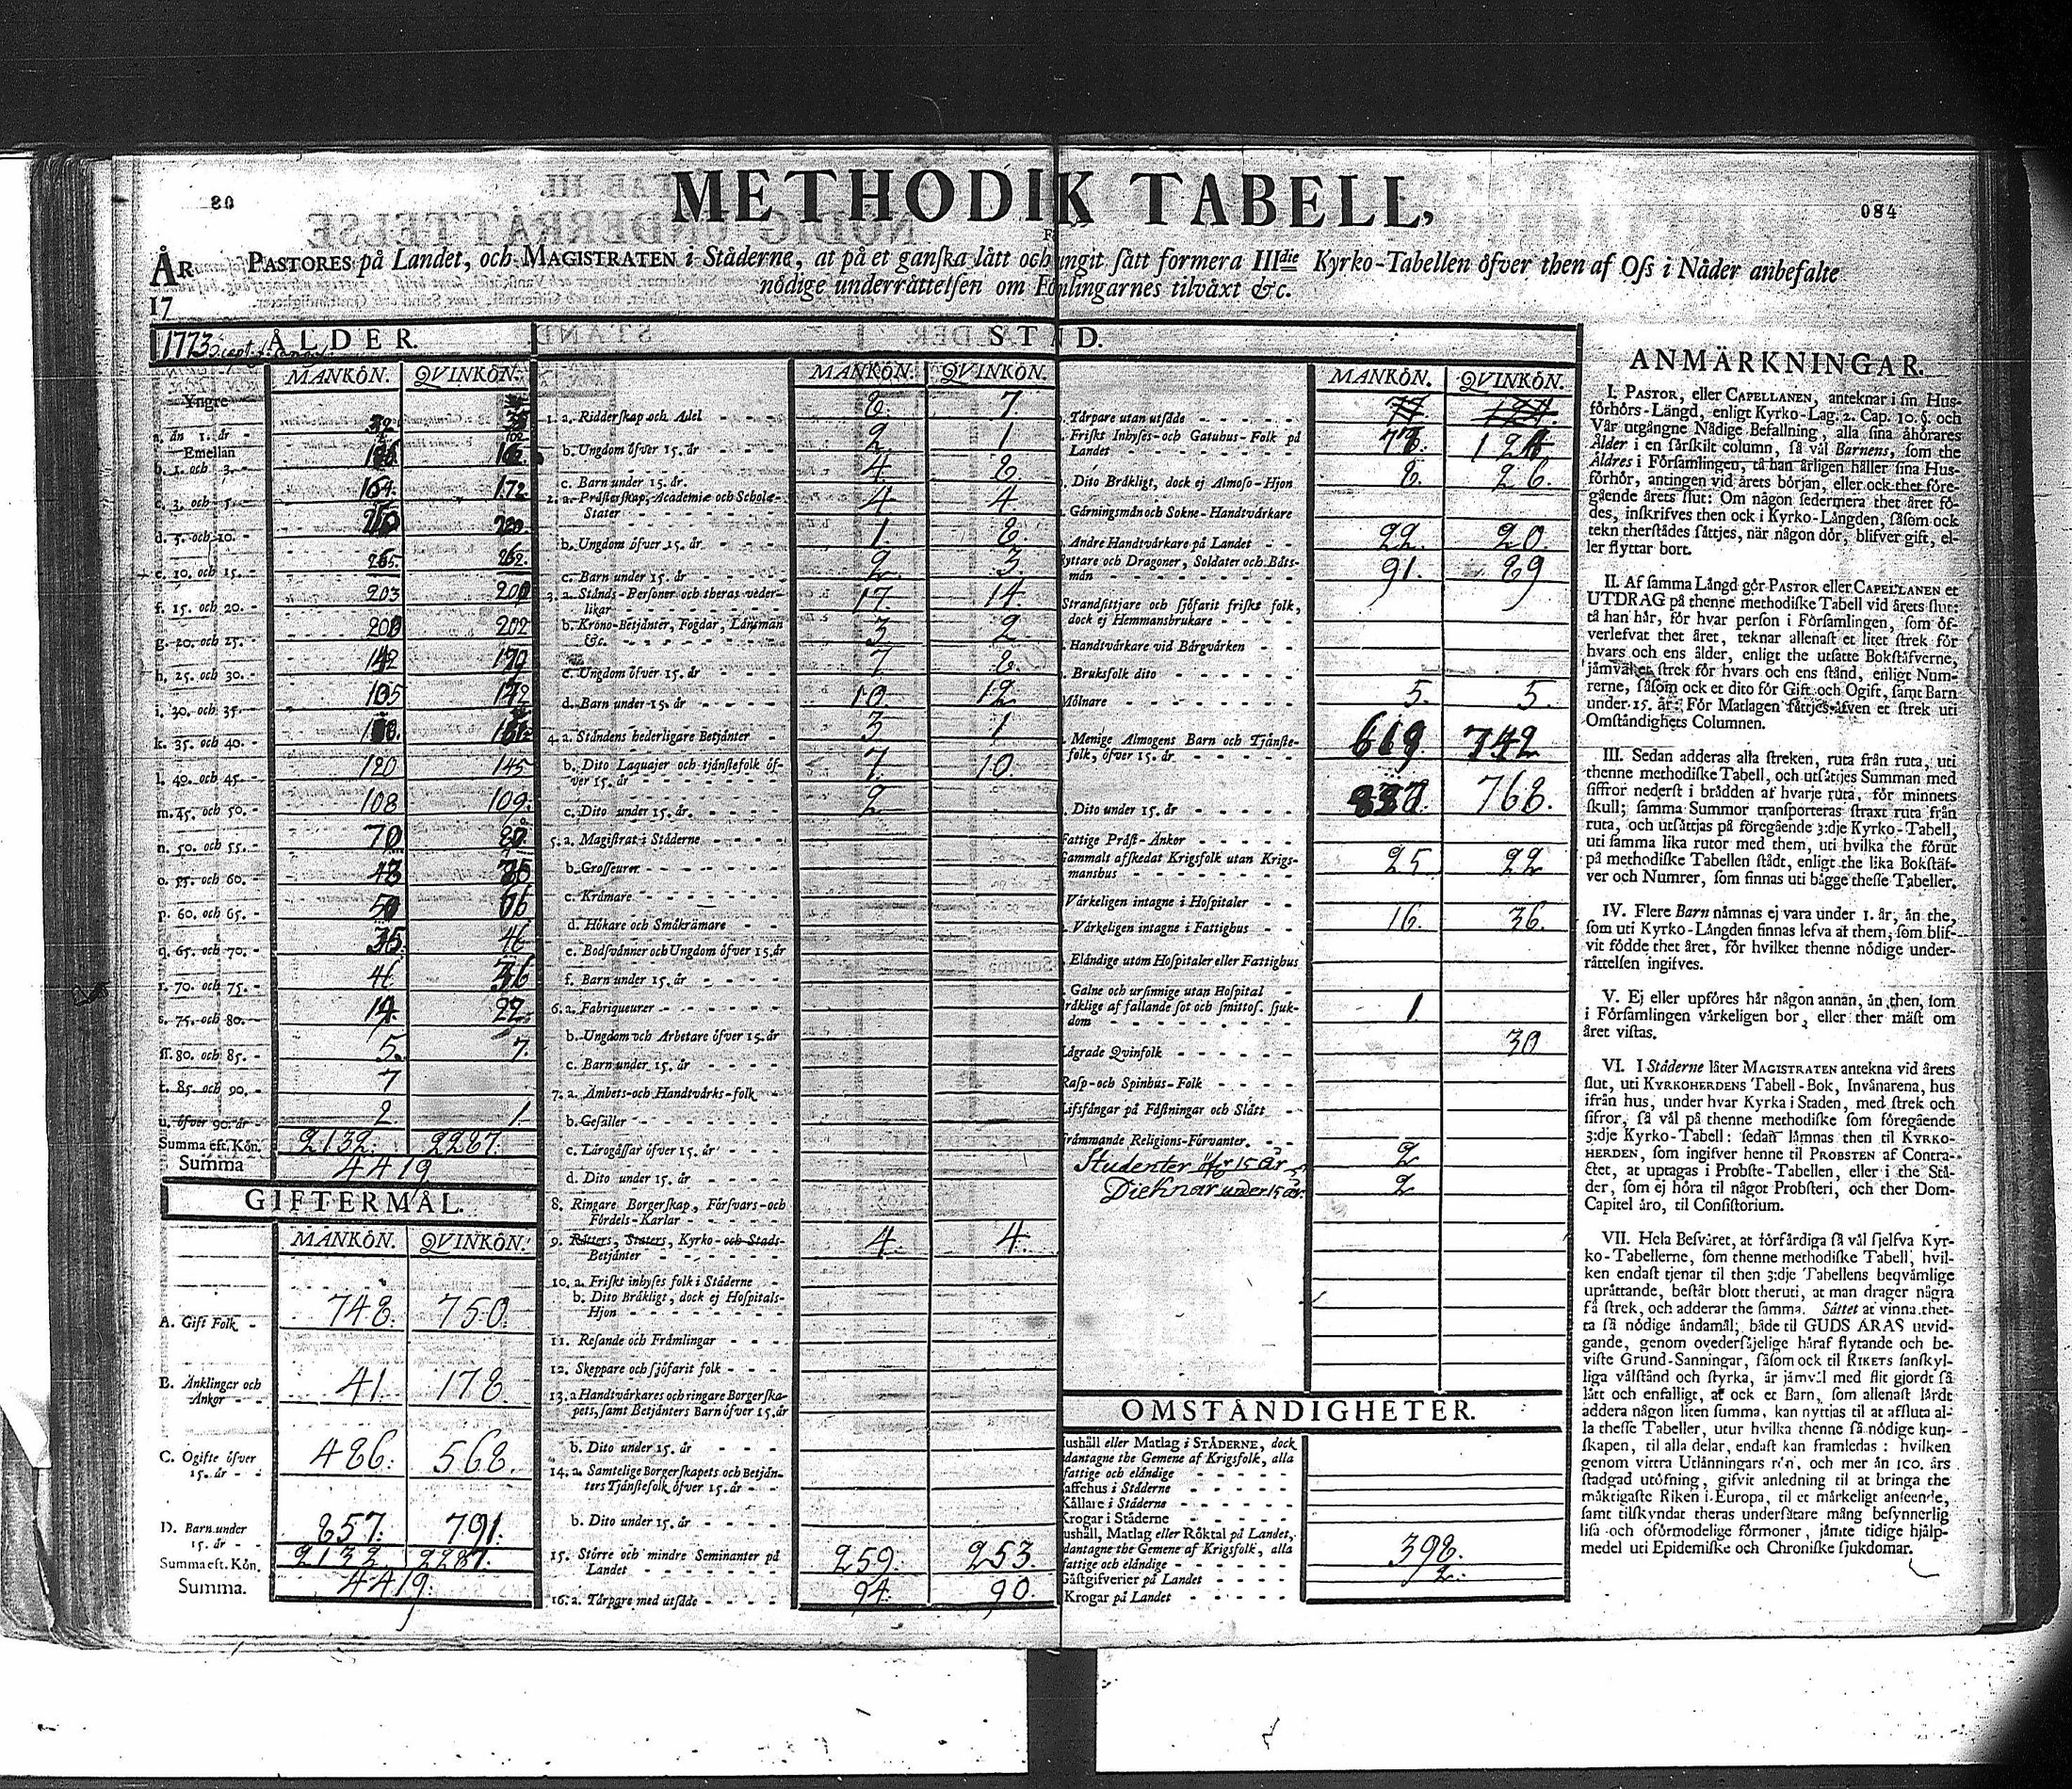 80
METHODIK TABELL,
084
ÅR PASTORES på Landet, och MAGISTRATEN i Städerne, at på et ganska lätt och ingit sätt formera IIIdie Kyrko-Tabellen öfver then af Oss i Nåder anbefalte
17 nödige underrättelsen om Fö lingarnes tilväxt &c.
1773 ÅLDER.
MANKÖN. QVINKÖN.
Yngre
a. än 1. år
Emellan
b. 1. och 3.
c. 3. och 5. 164. 172
d. 5. och 10. 220.
e. 10. och 15. 265. 262.
f. 15. och 20. 203
g. 20. och 25. 202
h. 25. och 30. 142
i. 30. och 35. 105
k. 35. och 40.
l. 40. och 45. 120 145
m. 45. och 50. 108 109.
n. 50. och 55. 70
o. 55. och 60.
p. 60. och 65.
q. 65. och 70.
r. 70. och 75.
s. 75. och 80. 14. 22.
ff. 80. och 85. 5. 7.
t. 85. och 90. 7
u. öfver 90. år 2. 1.
Summa eft. Kön. 2132. 2287.
Summa 4419
GIFTERMÅL.
MANKÖN. QVINKÖN.
A. Gift Folk 748. 750.
B. Änklingar och
Änkor 41. 178
C. Ogifte öfver
15. år 486. 568.
D. Barn under
15. år 857. 791.
Summa eft. Kön. 2132 2287.
Summa. 4419.
STÅ D.
MANKÖN. QVINKÖN.
1. a. Ridderskap och Adel 8. 7.
b. Ungdom öfver 15. år 2 1
c. Barn under 15. år. 4. 8.
2. a. Prästerskap, Academiæ och Scholæ-
Stater 4 4.
b. Ungdom öfver 15. år 1. 8.
c. Barn under 15. år 2. 3.
3. a. Stånds-Personer och theras veder-
likar 17. 14.
b. Krono-Betjänter, Fogdar, Länsmän
&c. 3 2.
c. Ungdom öfver 15. år 7 8.
d. Barn under 15. år 10. 12.
4. a. Ståndens hederligare Betjänter 3 1
b. Dito Laquajer och tjänstefolk öf-
ver 15. år 7. 10.
c. Dito under 15. år 2
5. a. Magistrat i Städerne
b. Grosseurer
c. Krämare
d. Hökare och Småkrämare
e. Bodsvänner och Ungdom öfver 15. år
f. Barn under 15. år
6. a. Fabriqueurer
b. Ungdom och Arbetare öfver 15. år
c. Barn under 15. år
7. a. Ämbets-och Handtvärks-folk
b. Gesäller
c. Lärogåssar öfver 15. år
d. Dito under 15. år
8. Ringare Borgerskap, Försvars-och
Fördels-Karlar
9. Rätters, Staters, Kyrko-och Stads-
Betjänter 4. 4.
10. a. Friskt inhyses folk i Städerne
b. Dito Bräkligt, dock ej Hospitals-
Hjon
11. Resande och Främlingar
12. Skeppare och sjöfarit folk
13. a Handtvärkares och ringare Borgerska-
pets, samt Betjänters Barn öfver 15. år
b. Dito under 15. år
14. a. Samtelige Borgerskapets och Betjän-
ters Tjänstefolk öfver 15. år
b. Dito under 15. år
15. Större och mindre Hemmanter på
Landet 259. 253.
16. a. Tårpare med utsäde 94. 90.
MANKÖN. QVINKÖN.
Tårpare utan utsäde
Friskt Inhyses-och Gatuhus-Folk på
Landet
Dito Bräkligt, dock ej Almoso-Hjon 8. 26.
Gärningsmän och Sokne-Handtvärkare
Andre Handtvärkare på Landet 22. 20.
yttare och Dragoner, Soldater och Båts-
män 91. 89
Strandsittjare och sjöfarit friskt folk,
dock ej Hemmansbrukare
Handtvärkare vid Bärgvärken
Bruksfolk dito
Mölnare 5. 5.
Menige Almogens Barn och Tjänste-
folk, öfver 15. år 619 742
Dito under 15. år 768.
Fattige Präst-Änkor
Gammalt afskedat Krigsfolk utan Krigs-
manshus 25 22
Värkeligen intagne i Hospitaler
Värkeligen intagne i Fattighus 16. 36.
Eländige utom Hospitaler eller Fattighus
Galne och ursinnige utan Hospital
räklige af fallande sot och smittos. sjuk-
dom 1.
ägrade Qvinfolk 30
Rasp-och Spinhus-Folk
Lifsfångar på Fästningar och Slått
Främmande Religions-Förvanter.
Studenter öfr 15 år 2
Dieknar under 15 år 2
OMSTÄNDIGHETER.
ushåll eller Matlag i STÄDERNE, dock
dantagne the Gemene af Krigsfolk, alla
fattige och eländige
affehus i Städerne
Källare i Städerne
Krogar i Städerne
ushåll, Matlag eller Röktal på Landet,
dantagne the Gemene af Krigsfolk, alla
fattige och eländige 398.
Gästgifverier på Landet 2.
Krogar på Landet
ANMÄRKNINGAR.
I. PASTOR, eller CAPELLANEN, anteknar i sin Hus-
förhörs-Längd, enligt Kyrko-Lag. 2. Cap. 10. §. och
Vår utgångne Nådige Befallning, alla sina åhörares
Ålder i en särskilt column, så väl Barnens, som the
Äldres i Församlingen, tå han årligen håller sina Hus-
förhör, antingen vid årets början, eller ock thet före-
gående årets slut: Om någon sedermera thet året fö-
des, inskrifves then ock i Kyrko-Längden, såsom ock
tekn therstädes sättjes, när någon dör, blifver gift, el-
ler flyttar bort.
II. Af samma Längd gör PASTOR eller CAPELLANEN et
UTDRAG på thenne methodiske Tabell vid årets slut:
tå han här, för hvar person i Församlingen, som öf-
verlefvat thet året, teknar allenast et litet strek för
hvars och ens ålder, enligt the utsatte Bokstäfverne,
jämväl et strek för hvars och ens stånd, enligt Num-
rerne, såsom ock et dito för Gift och Ogift, samt Barn
under 15. år: För Matlagen sättjes äfven et strek uti
Omständighets Columnen.
III. Sedan adderas alla streken, ruta från ruta, uti
thenne methodiske Tabell, och utsättjes Summan med
siffror nederst i brädden af hvarje ruta, för minnets
skull; samma Summor transporteras straxt ruta från
ruta, och utsättjas på föregående 3:dje Kyrko-Tabell,
uti samma lika rutor med them, uti hvilka the förut
på methodiske Tabellen stådt, enligt the lika Bokstäf-
ver och Numrer, som finnas uti bägge thesse Tabeller.
IV. Flere Barn nämnas ej vara under 1. år, än the,
som uti Kyrko-Längden finnas lefva af them, som blif-
vit födde thet året, för hvilket thenne nödige under-
rättelsen ingifves.
V. Ej eller upföres här någon annan, än then, som
i Församlingen värkeligen bor, eller ther mäst om
året vistas.
VI. I Städerne låter MAGISTRATEN antekna vid årets
slut, uti KYRKOHERDENS Tabell-Bok, Invånarena, hus
ifrån hus, under hvar Kyrka i Staden, med strek och
sifror, så väl på thenne methodiske som föregående
3:dje Kyrko-Tabell: sedan lämnas then til KYRKO-
HERDEN, som ingifver henne til PROBSTEN af Contra-
ctet, at uptagas i Probste-Tabellen, eller i the Stä-
der, som ej höra til något Probsteri, och ther Dom-
Capitel äro, til Consistorium.
VII. Hela Besväret, at förfärdiga så väl sjelfva Kyr-
ko-Tabellerne, som thenne methodiske Tabell, hvil-
ken endast tjenar til then 3:dje Tabellens beqvämlige
uprättande, består blott theruti, at man drager några
få strek, och adderar the samma. Sättet at vinna thet-
ta så nödige ändamål; både til GUDS ÄRAS utvid-
gande, genom ovedersäjelige häraf flytande och be-
viste Grund-Sanningar, såsom ock til RIKETS sanskyl-
liga välstånd och styrka, är jämväl med flit gjordt så
lätt och enfalligt, at ock et Barn, som allenast lärdt
addera någon liten summa, kan nyttjas til at affluta al-
la thesse Tabeller, utur hvilka thenne så nödige kun-
skapen, til alla delar, endast kan framledas: hvilken
genom vittra Utlänningars rön, och mer än 100. års
stadgad utöfning, gifvit anledning til at bringa the
mäktigaste Riken i Europa, til et märkeligt anseende,
samt tilskyndat theras undersåtare mång besynnerlig
lisa och oförmodelige förmoner, jämte tidige hjälp-
medel uti Epidemiske och Chroniske sjukdomar.